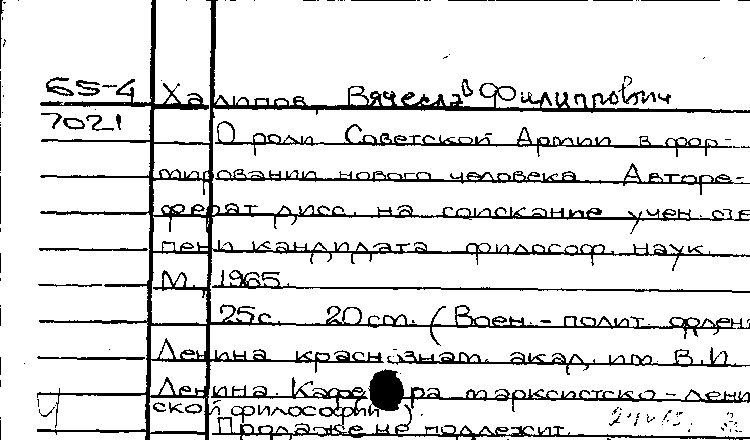 65-4 Халипов, Вячеслав Филиппович
7021 О роли Советской Армии в фор-
мировании нового человека. Авторе-
ферат дисс. на соискание учен. сте
пени кандидата философ. наук.
М., 1965.
25с. 20см. (Воен.-полит. ордена
Ленина краснознам. акад. им. В.И.
Ленина. Кафедра марксистско-лени
ской философии).
Продаже не подлежит.